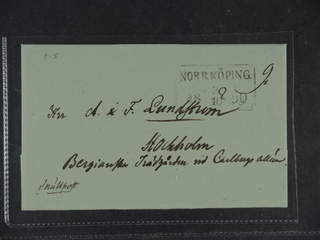 NORRKÖPING.
18 9 10 50
Herr A & F. Lundstrom
Stockholm
Bergianska Trädgården vid Carlbergs alléen
Snällpost